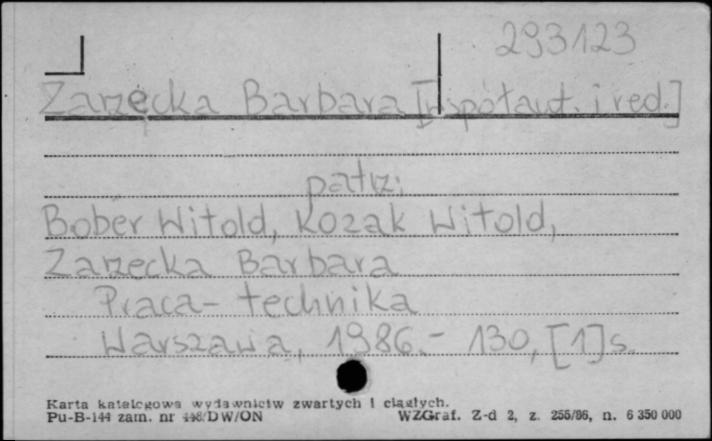 293123
Zarzecka Barbara [współaut. i red.]
patrz:
Bober Witold, Kozak Witold,
Zarzecka Barbara
Praca - technika
Warszawa, 1986.- 130, [1] s.
Karta katalogowa wydawnictw zwartych i ciągłych.
Pu-B-144 zam. nr 448/DW/ON WZGraf. Z-d 2, z. 255/86, n. 6 350 000